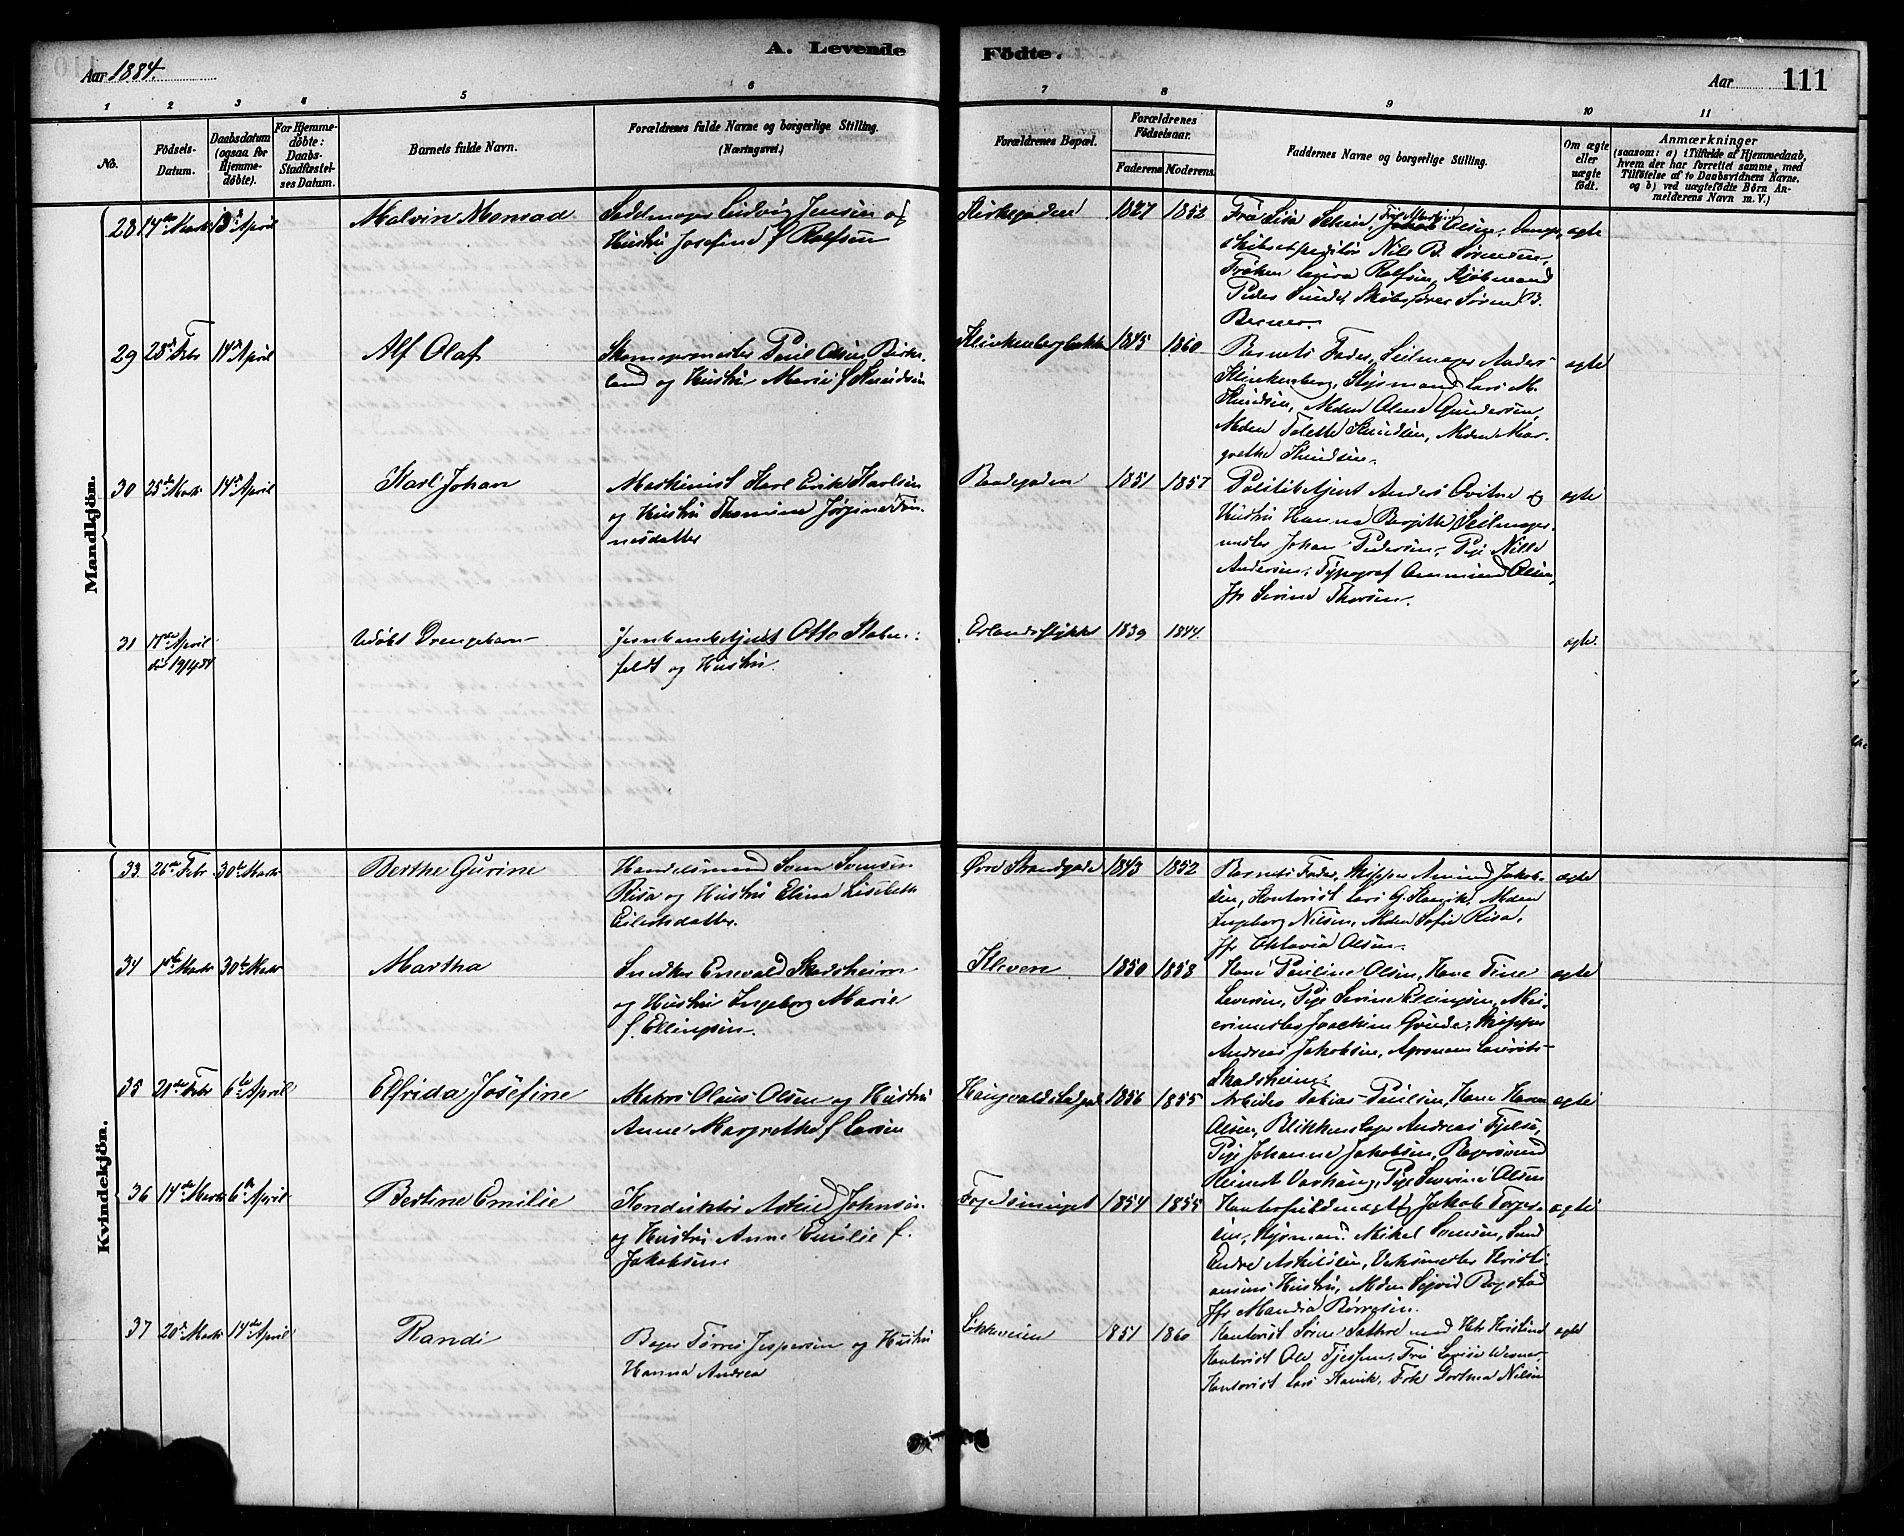 A. Levende Födte.
Aar 1884.
Aar 111
1 2 3 4 5 6 7 8 9 10 11
No.
Födsels-Datum.
Daabsdatum (ogsaa for Hjemme-døbte).
For Hjemme-døbte: Daabs-Stadfæstel-ses Datum.
Barnets fulde Navn.
Forældrenes fulde Navne og borgerlige Stilling.
(Næringsvei.)
Forældrenes Bopæl.
Forældrenes Födselsaar.
Faderens Moderens.
Faddernes Navne og borgerlige Stilling.
Om ægte eller uægte født.
Anmærkninger
(saasom: a) i Tilfælde af Hjemmedaab,
hvem der har forrettet samme, med
Tilføielse af to Daabsvidners Navne.
og b) ved uægtefödte Börn An-
melderens Navn m. V.)
Mandkjön.
28 14de Marts 13de April Malvin Monrad Sadelmager Ludvig Jensen og
Hustru Josefine f. Rolfsen
Kirkegaden 1827 1852 Fru Lisa Olsen,
Skibsexpeditør Nils B. Sørensen,
Frøken Rolfsen, Kjøbmand
Peder Sunde, Skibsfører Søren B.
Berner.
ægte
29 28de Febr 14de April Alf Olaf Skomagermester Paul Olsen Birke-
land og Hustru Marie f. Knudsen
Klinkenbergbakke 1845 1860 Barnets Fader, Seilmager Anders
Klinkenberg, Styrmand Lars M.
Knudsen, Mdm Olene Gundersen,
Mdm Tolette Knudsen, Mdm Mar-
grethe Knudsen.
ægte
30 25de Marts 14de April Karl Johan Maskinist Karl Erik Karlsen
og Hustru Thomine Jørgine Tøn-
nesdatter
1851 1857 Politibetjent Anders Qvitne og
Hustru Hanna Bergitte, Seilmager-
mester Johan Pedersen, Pige Nille
Andersen, Typograf Ommund Olsen,
Jfr Serine Thorsen.
ægte
31 17de April
død 19/4 84
Udøbt Drengebarn Jernbanebetjent Otto Stabn-
feldt og Hustru.
Erlandsstykket 1839 1844. ægte.
Kvindekjön.
33 26de Febr. 30de Marts Berthe Gurine Handelsmand Sven Svensen
Risa og Hustru Elina Lisebeth
Eilertsdatter.
Øvre Strandgade 1843 1852 Barnets Fader, Skipper Amund Jakob-
sen, Kontorist Lars G. Hauvik, Mdm
Ingeborg Nilsen, Mdm Sofie Risa,
Jfr Oktavia Olsen.
ægte
34 1ste Marts 30de Marts Martha Snedker Enevald Skadsheim
og Hustru Ingeborg Marie
f. Ellingsen.
Kleven 1850 1858 Kone Pauline Olsen, Kone Tine
Seversen, Pige Serine Ellingsen, Mu-
rermester Joachim Grude, Skipper
Andreas Jakobsen, Agronom Laurits
Skadsheim.
ægte
35 21de Febr 6te April Elfrida Josefine Matros Olaus Olsen og Hustru
Anne Margrethe f. Larsen
1856 1855 Arbeider Tobias Paulsen, Kone Karen
Olsen, Blikkenslager Andreas Tjelse,
Pige Johanne Jakobsen, Bagersvend
Reinert Varhaug, Pige Severine Olsen
ægte
36 14de Marts 6te April Bertine Emilie Konduktør Askild Johnsen
og Hustru Anne Emilie f.
Jakobsen
1854 1855 Kontorfuldmægtig Jakob Torger-
sen, Styrmand Mikal Svensen,
Endre Askildsen, Værksmester Kristi-
ansens Hustru, Mdm Sigrid Rogstad
Jfr Mandia Børresen.
ægte
37 20de Marts 14de April Randi Bager Tørres Jespersen og Hustru
Hanna Andrea
Løkkeveien 1851 1860 Kontorist Sørine Sothe med Hustru Kristine
Kontorist Ole Tjessem, Fru Lovise Werner,
Kontorist Lars Hauvik, Frk Gertine Nilsen
ægte